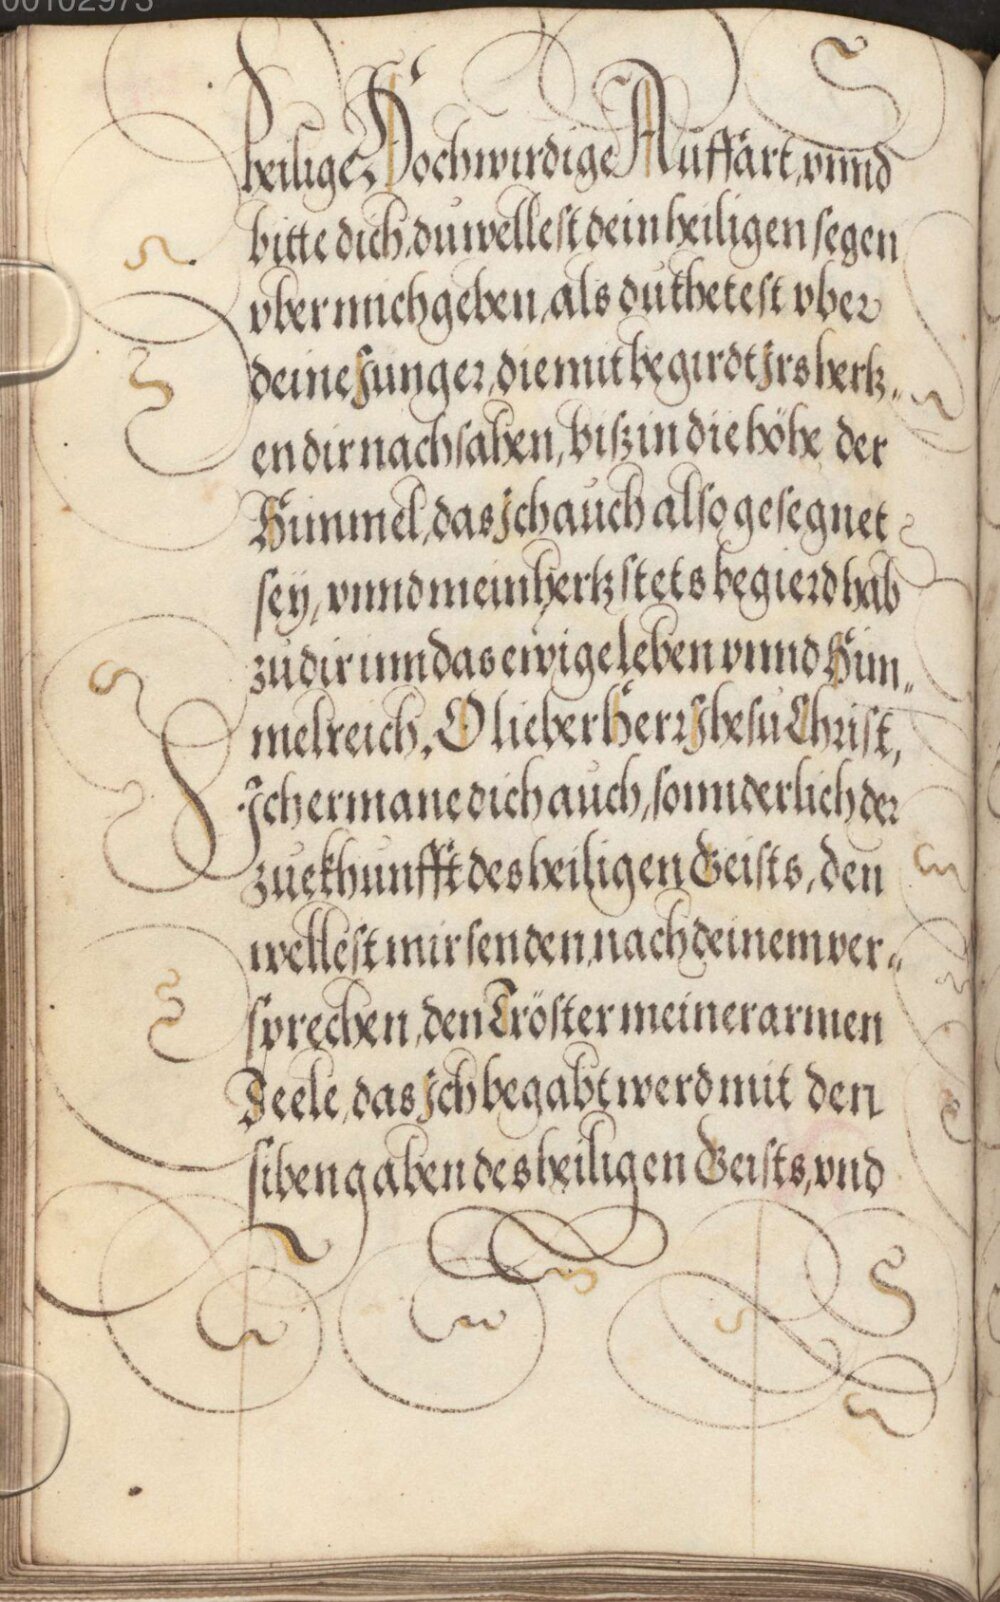 00102973
heilige Hochwirdige Auffart, vnnd
bitte dich, du wellest dein heiligen segen
vber mich geben, als du thetest vber
deine Junger, die mit begirdt Jrs hertz„
en dir nach sahen, biß in die höhe der
Himmel, das Jch auch also gesegnet
seÿ, vnnd mein hertz stets begierd hab
zu dir inn das ewige leben vnnd Him„
melreich. O lieber Herr Jhesu Christ,
Jch ermane dich auch, sonnderlich der
zuekhunfft des heiligen Geists, den
wellest mir senden, nach deinem ver„
sprechen, den Tröster meiner armen
Seele, das Jch begabt werd mit den
siben gaben des heiligen Geists, vnd